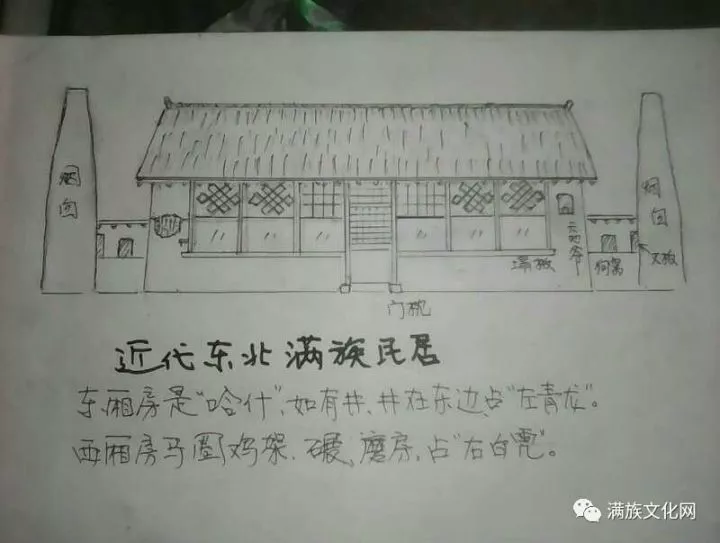 烟囱
烟囱
天地爷
狗窝
门枕
近代东北满族民居
东厢房是“哈什”、如有井、井在东边、占“左青龙”。
西厢房马圈鸡架、碾、磨房、占“右白虎”。
满族文化网